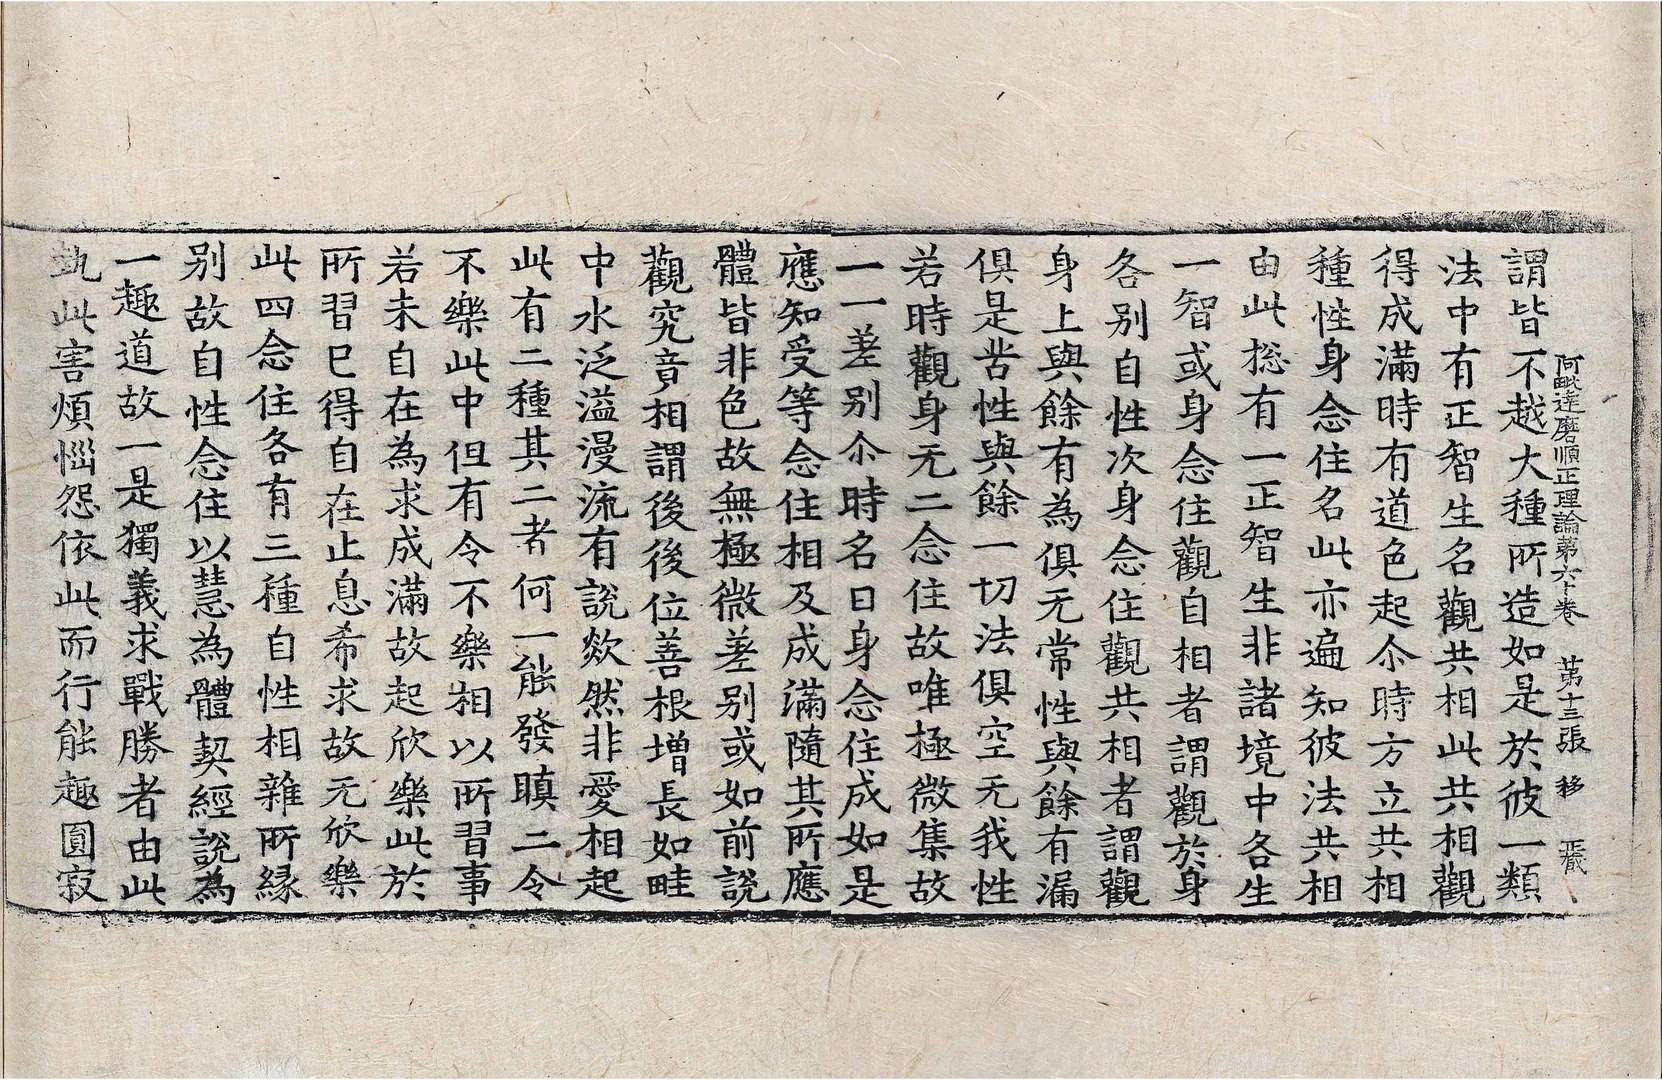 阿毗達磨順正理論第六十卷 第十三張 移
謂皆不越大種所造如是於彼一類
法中有正智生名觀共相此共相觀
得成滿時有道色起尒時方立共相
種性身念住名此亦遍知彼法共相
由此揔有一正智生非諸境中各生
一智或身念住觀自相者謂觀於身
各别自性次身念住觀共相者謂觀
身上與餘有為俱无常性與餘有漏
俱是苦性與餘一切法俱空无我性
若時觀身无二念住故唯極微集故
一一差别尒時名曰身念住成如是
應知受等念住相及成滿隨其所應
體皆非色故無極微差别或如前說
觀究竟相謂後後位善根增長如畦
中水泛溢漫流有說欻然非愛相起
此有二種其二者何一能發瞋二令
不樂此中但有令不樂相以所習事
若未自在為求成滿故起欣樂此於
所習已得自在止息希求故无欣樂
此四念住各有三種自性相雜所緣
别故自性念住以慧為體契經說為
一趣道故一是獨義求戰勝者由此
執此害煩惱怨依此而行能趣圓寂